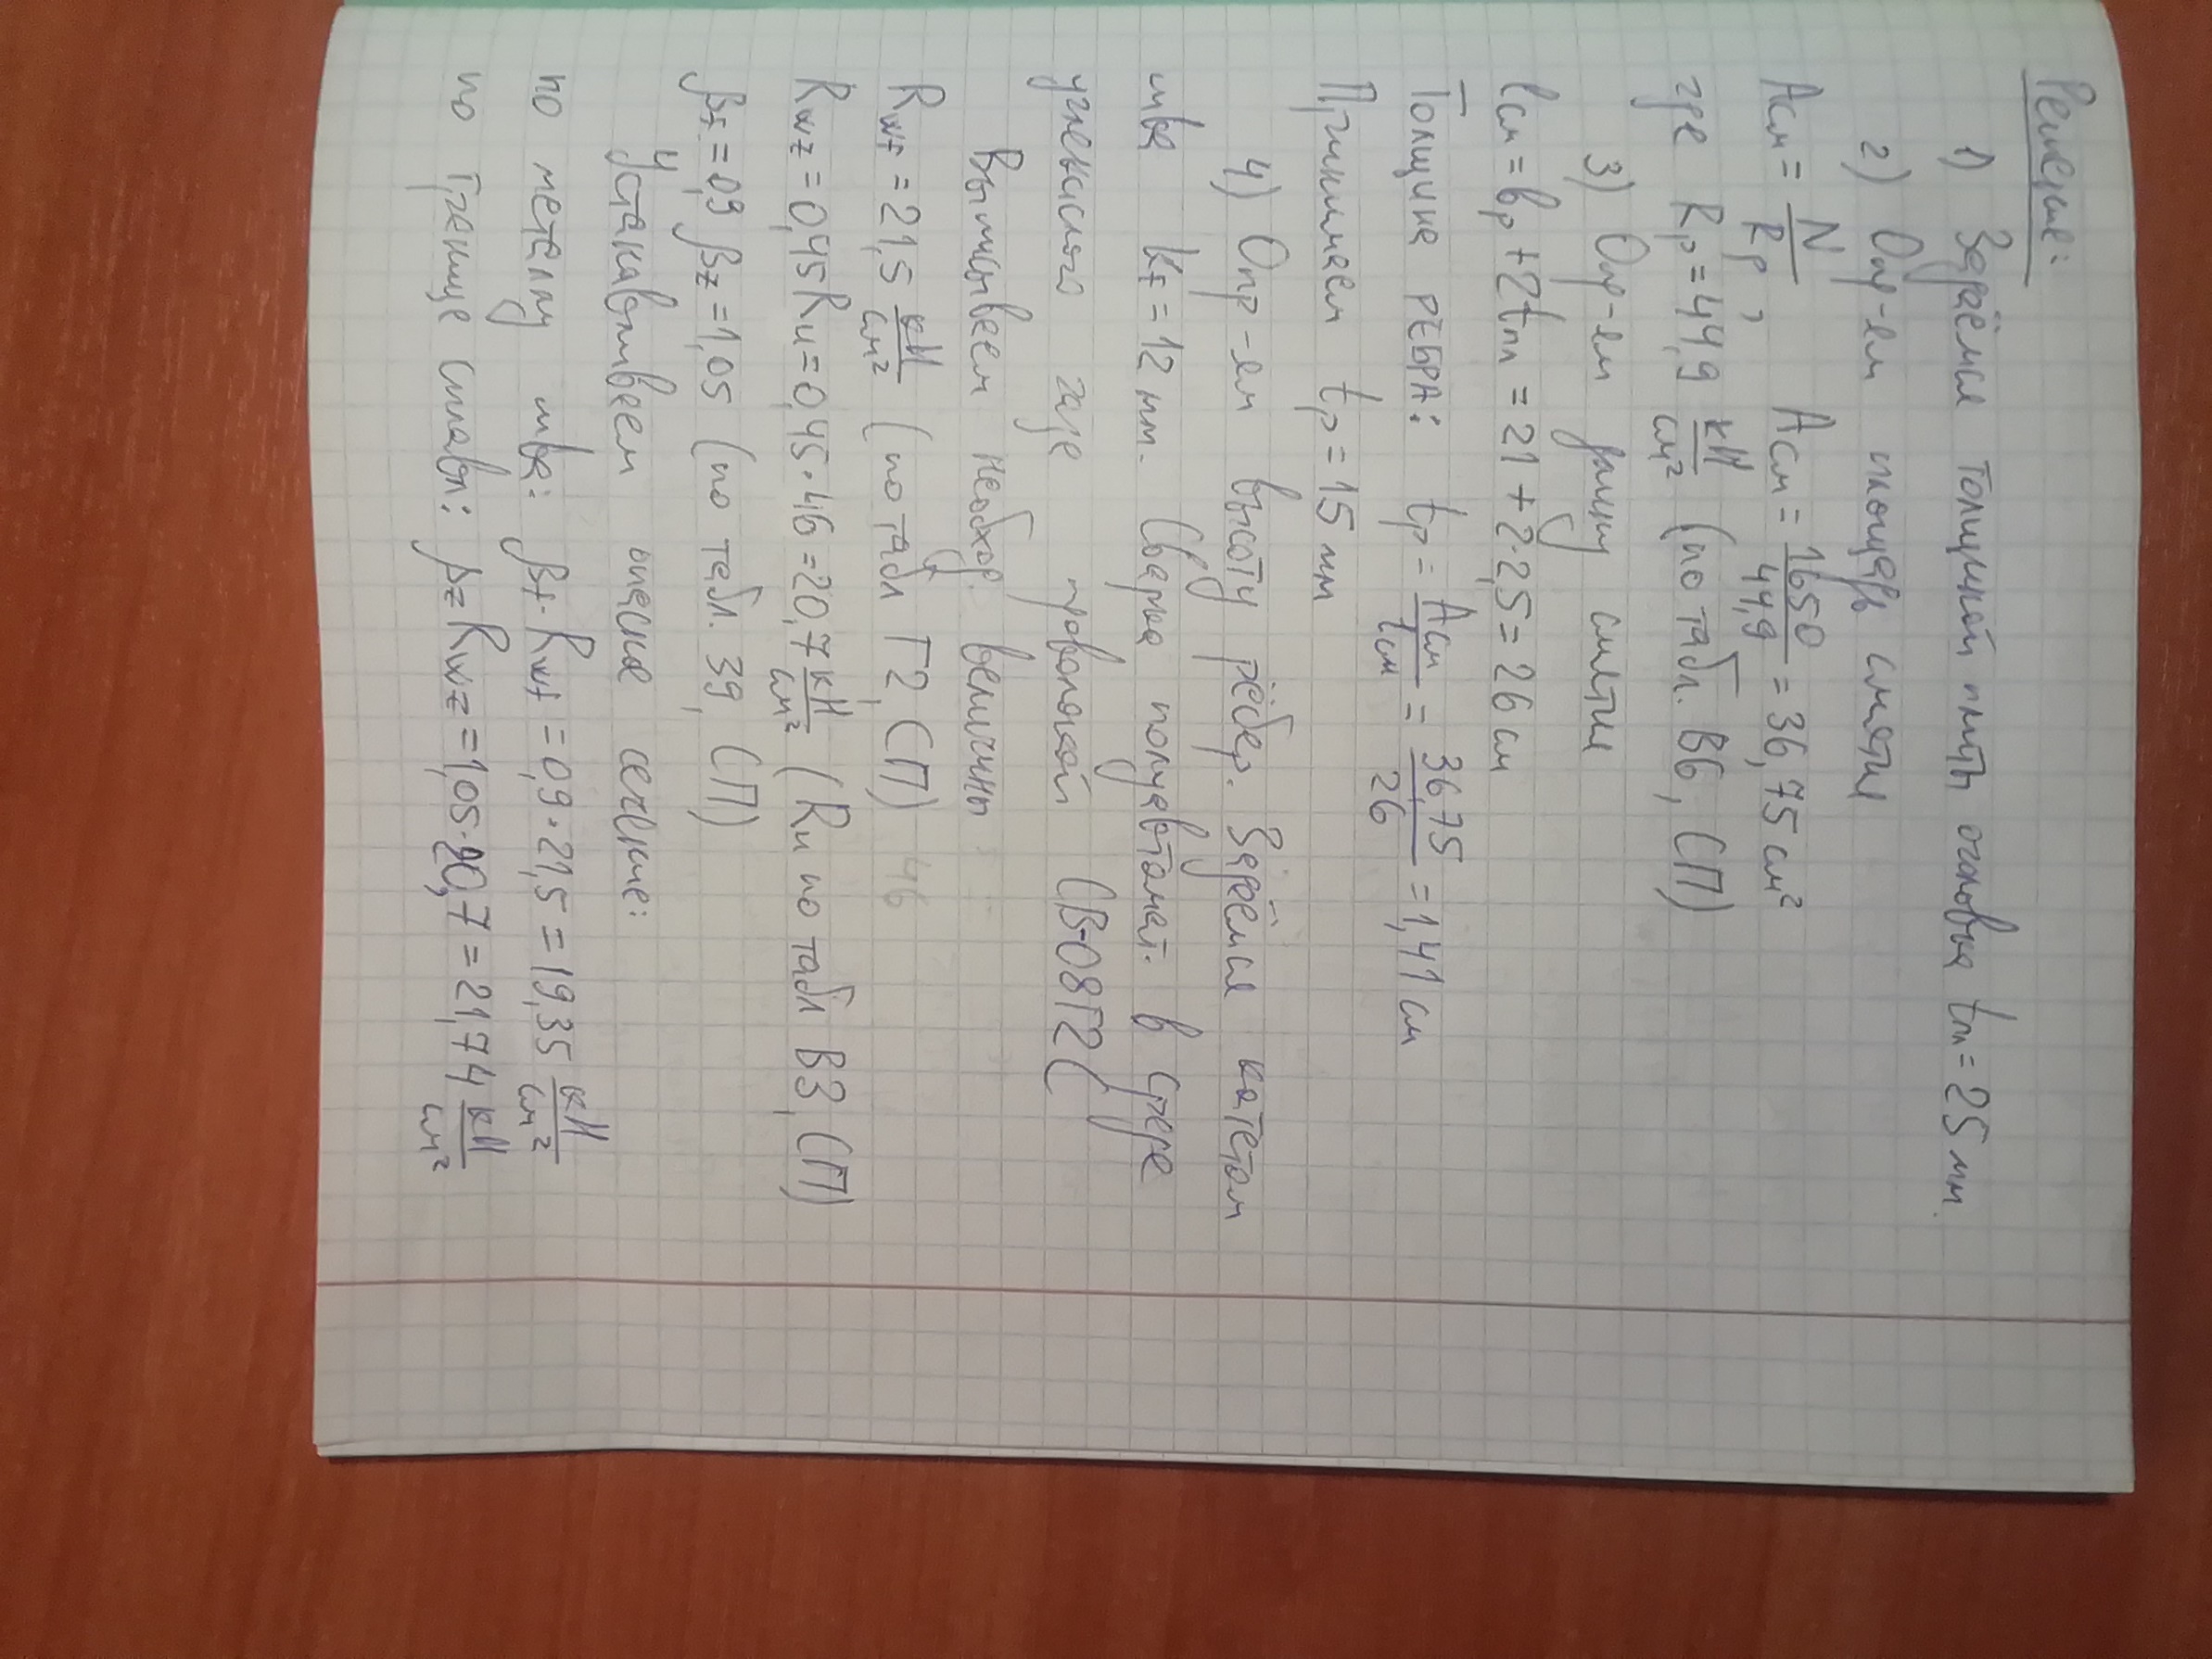 Решение:
1) Задаёмся толщиной плиты оголовка tпл = 25 мм.
2) Опр-ем площадь смятия
Aсм = N/Rp, Aсм = 1650/44,9 = 36,75 см²
где Rp = 44,9 кН/см² (по табл. В6, СП)
3) Опр-ем длину смятия
lсм = bp + 2tпл = 21 + 2·2,5 = 26 см
Толщина РЕБРА: tp = Aсм/lсм = 36,75/26 = 1,41 см
Принимаем tp = 15 мм
4) Опр-ем высоту рёбер. Задаёмся катетом
шва kf = 12 мм. Сварка полуавтомат. в среде
углекислого газа проволокой СВ-08Г2С
Выписываем необход. величины
Rwf = 21,5 кН/см² (по табл Г2, СП) 46
Rwz = 0,45Ru = 0,45·46 = 20,7 кН/см² (Ru по табл В3, СП)
βf = 0,9 βz = 1,05 (по табл. 39, СП)
Устанавливаем опасное сечение:
по металлу шва: βf·Rwf = 0,9·21,5 = 19,35 кН/см²
по границе сплавл: βz Rwz = 1,05·20,7 = 21,74 кН/см²